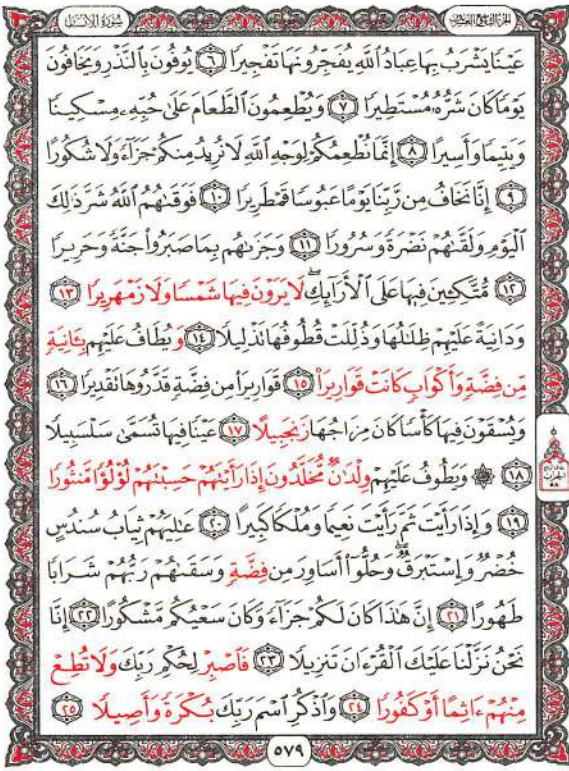 سُورَةُ الإِنسَانِ
الجُزْءُ التَّاسِعُ وَالعِشْرُونَ
عَيْنًا يَشْرَبُ بِهَا عِبَادُ ٱللَّهِ يُفَجِّرُونَهَا تَفْجِيرًا ٦ يُوفُونَ بِٱلنَّذْرِ وَيَخَافُونَ
يَوْمًا كَانَ شَرُّهُۥ مُسْتَطِيرًا ٧ وَيُطْعِمُونَ ٱلطَّعَامَ عَلَىٰ حُبِّهِۦ مِسْكِينًا
وَيَتِيمًا وَأَسِيرًا ٨ إِنَّمَا نُطْعِمُكُمْ لِوَجْهِ ٱللَّهِ لَا نُرِيدُ مِنكُمْ جَزَآءً وَلَا شُكُورًا
٩ إِنَّا نَخَافُ مِن رَّبِّنَا يَوْمًا عَبُوسًا قَمْطَرِيرًا ١٠ فَوَقَىٰهُمُ ٱللَّهُ شَرَّ ذَٰلِكَ
ٱلْيَوْمِ وَلَقَّىٰهُمْ نَضْرَةً وَسُرُورًا ١١ وَجَزَىٰهُم بِمَا صَبَرُوا۟ جَنَّةً وَحَرِيرًا
١٢ مُّتَّكِـِٔينَ فِيهَا عَلَى ٱلْأَرَآئِكِ ۖ لَا يَرَوْنَ فِيهَا شَمْسًا وَلَا زَمْهَرِيرًا ١٣
وَدَانِيَةً عَلَيْهِمْ ظِلَٰلُهَا وَذُلِّلَتْ قُطُوفُهَا تَذْلِيلًا ١٤ وَيُطَافُ عَلَيْهِم بِـَٔانِيَةٍ
مِّن فِضَّةٍ وَأَكْوَابٍ كَانَتْ قَوَارِيرَا۠ ١٥ قَوَارِيرَا۟ مِن فِضَّةٍ قَدَّرُوهَا تَقْدِيرًا ١٦
وَيُسْقَوْنَ فِيهَا كَأْسًا كَانَ مِزَاجُهَا زَنجَبِيلًا ١٧ عَيْنًا فِيهَا تُسَمَّىٰ سَلْسَبِيلًا
١٨ ۞ وَيَطُوفُ عَلَيْهِمْ وِلْدَٰنٌ مُّخَلَّدُونَ إِذَا رَأَيْتَهُمْ حَسِبْتَهُمْ لُؤْلُؤًا مَّنثُورًا
١٩ وَإِذَا رَأَيْتَ ثَمَّ رَأَيْتَ نَعِيمًا وَمُلْكًا كَبِيرًا ٢٠ عَٰلِيَهُمْ ثِيَابُ سُندُسٍ
خُضْرٌ وَإِسْتَبْرَقٌ ۖ وَحُلُّوٓا۟ أَسَاوِرَ مِن فِضَّةٍ وَسَقَىٰهُمْ رَبُّهُمْ شَرَابًا
طَهُورًا ٢١ إِنَّ هَٰذَا كَانَ لَكُمْ جَزَآءً وَكَانَ سَعْيُكُم مَّشْكُورًا ٢٢ إِنَّا
نَحْنُ نَزَّلْنَا عَلَيْكَ ٱلْقُرْءَانَ تَنزِيلًا ٢٣ فَٱصْبِرْ لِحُكْمِ رَبِّكَ وَلَا تُطِعْ
مِنْهُمْ ءَاثِمًا أَوْ كَفُورًا ٢٤ وَٱذْكُرِ ٱسْمَ رَبِّكَ بُكْرَةً وَأَصِيلًا ٢٥
٥٧٩